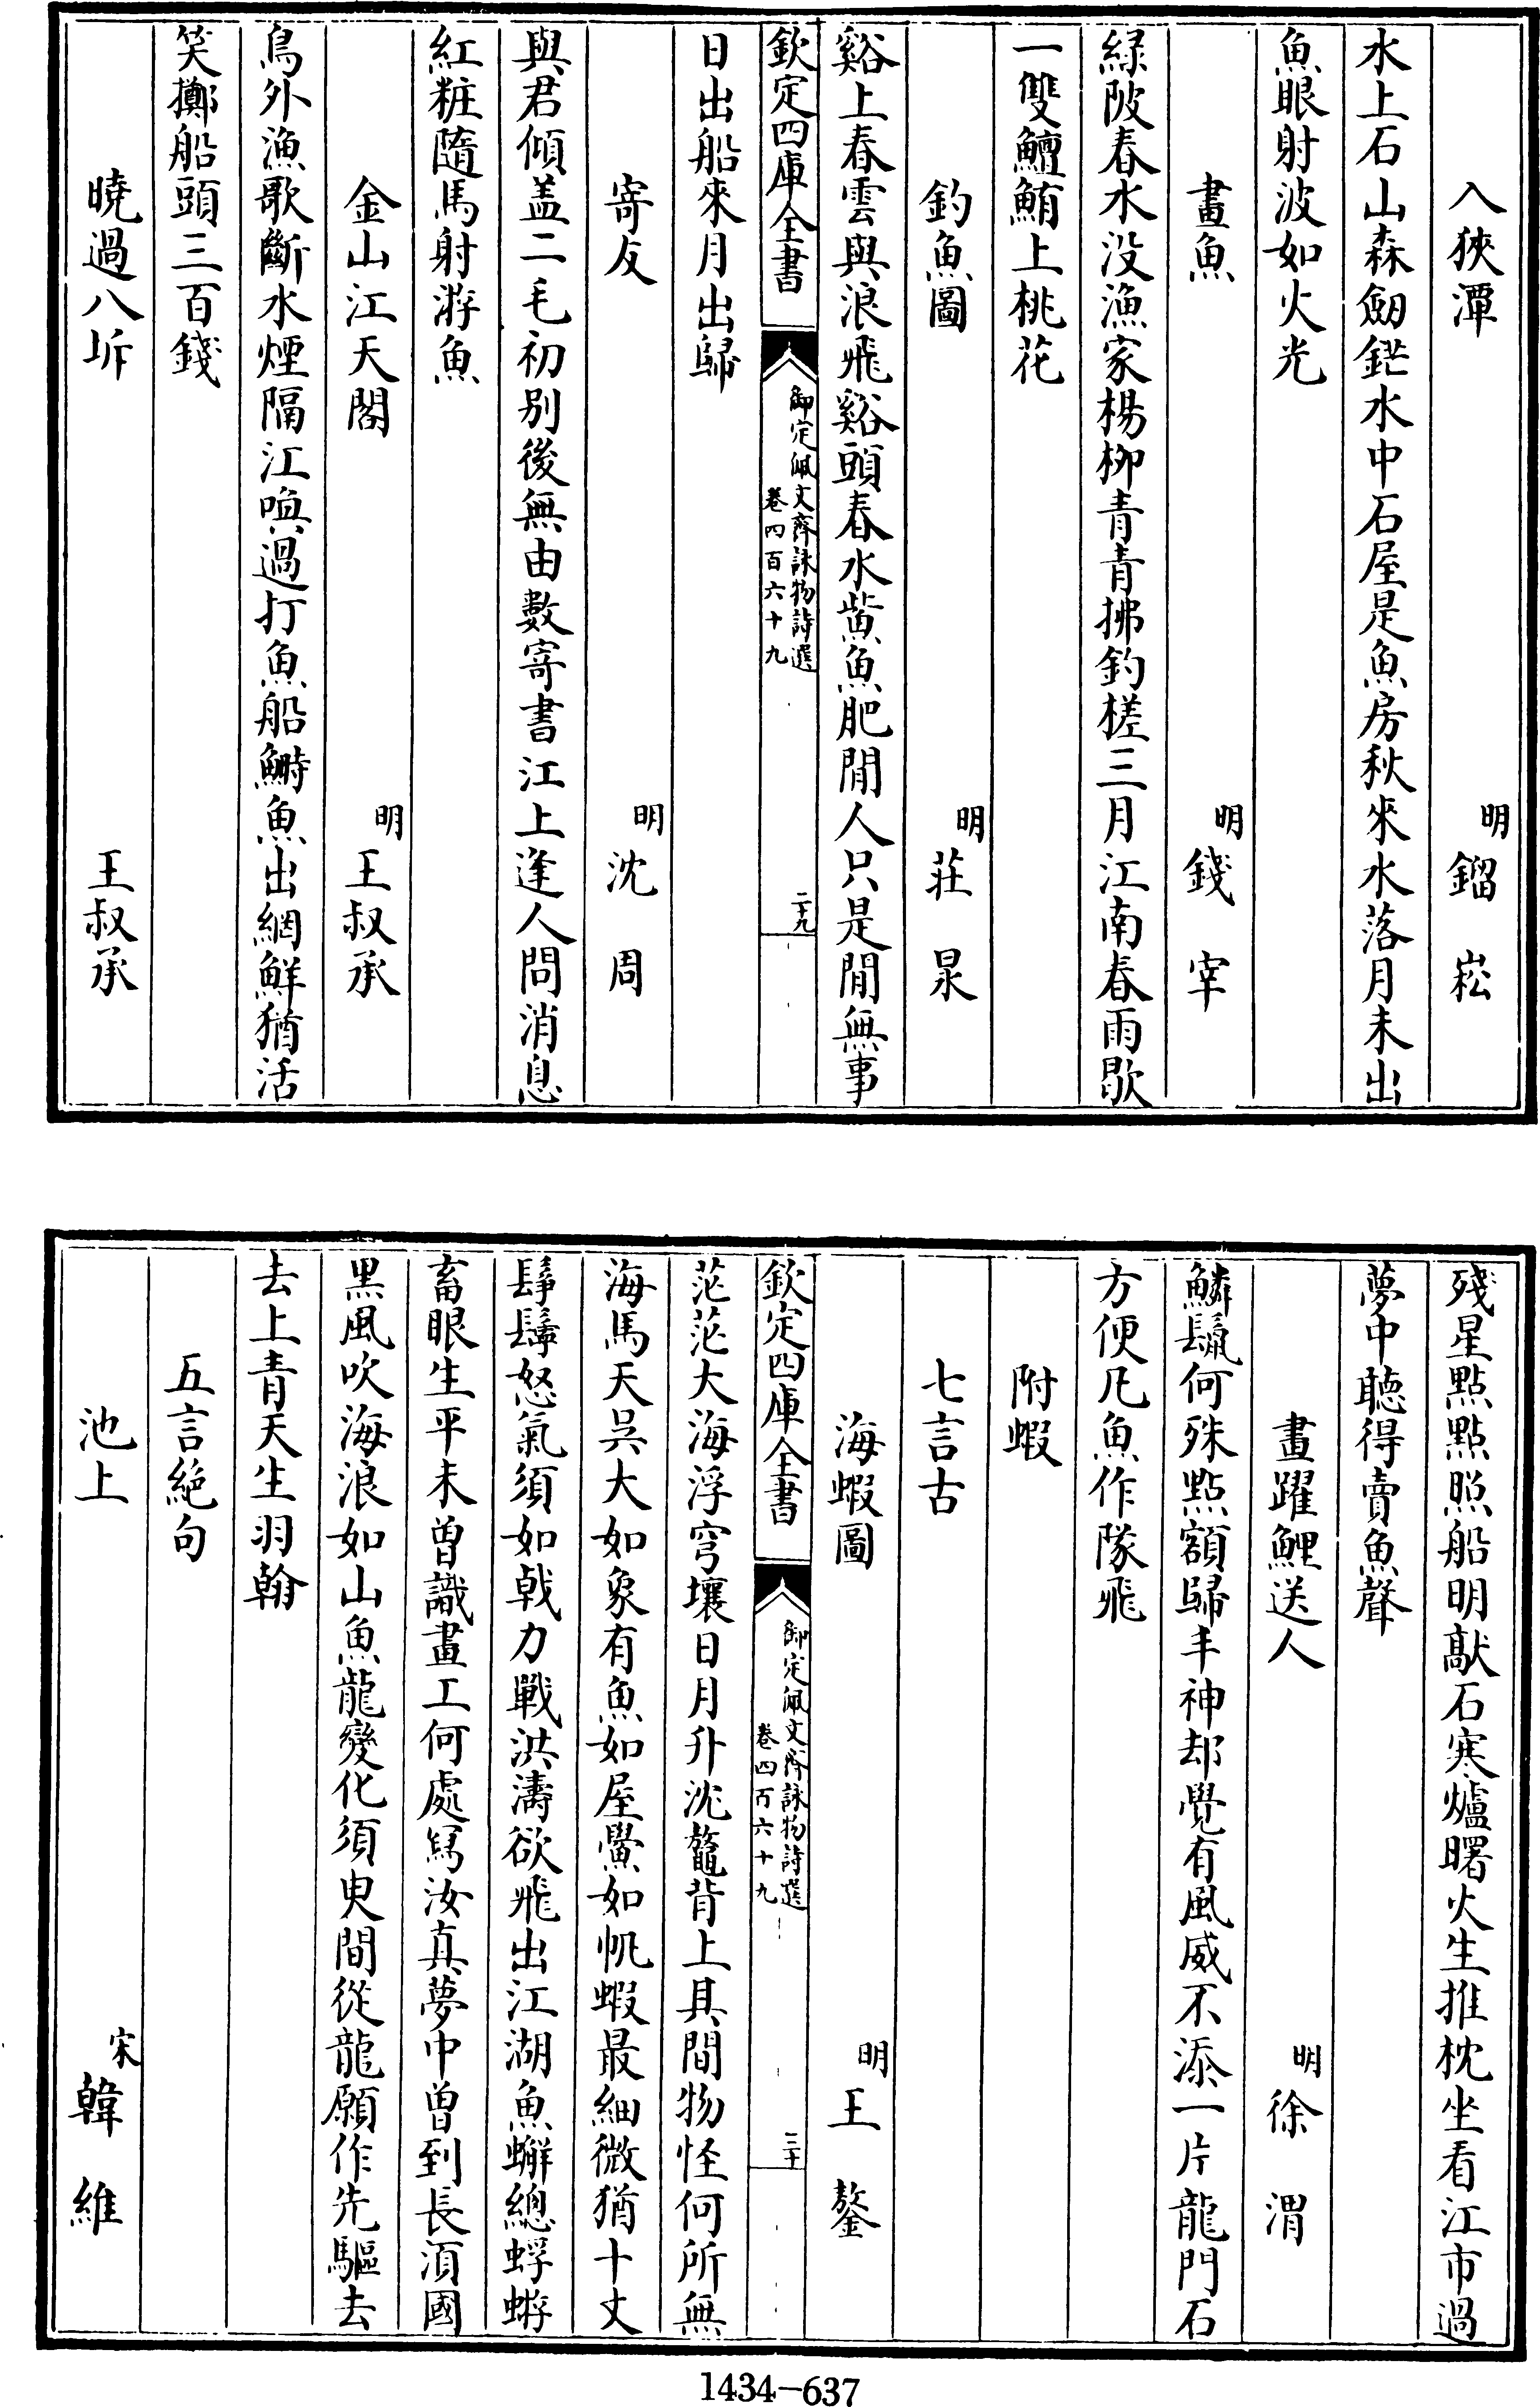 入狹潭　明鎦崧
水上石山森劒鋩水中石屋是魚房秋來水落月未出
魚眼射波如火光
畫魚　明錢宰
緑陂春水没漁家楊柳青青拂釣槎三月江南春雨歇
一雙鱣鮪上桃花
釣魚圖　明莊㫤
谿上春雲與浪飛谿頭春水鮆魚肥閒人只是閒無事
欽定四庫全書
御定佩文齋詠物詩選
卷四百六十九
二十九
日出船來月出歸
寄友　明沈周
與君傾盖二毛初别後無由數寄書江上逢人問消息
紅粧隨馬射游魚
金山江天閣　明王叔承
鳥外漁歌斷水煙隔江喚過打魚船鰣魚出網鮮猶活
笑擲船頭三百錢
曉過八坼　王叔承
殘星點點照船明㪣石寒爐曙火生推枕坐看江市過
夢中聽得賣魚聲
畫躍鯉送人　明徐渭
鱗鬛何殊點額歸丰神却覺有風威不添一片龍門石
方便凡魚作隊飛
附蝦
七言古
海蝦圖　明王鏊
欽定四庫全書
御定佩文齋詠物詩選
卷四百六十九
三十
茫茫大海浮穹壤日月升沈鼇背上其間物怪何所無
海馬天吳大如象有魚如屋鱟如帆蝦最細微猶十丈
髬髵怒氣須如戟力戰洪濤欲飛出江湖魚蠏總蜉蝣
畜眼生平未曾識畫工何處寫汝真夢中曾到長湏國
黑風吹海浪如山魚龍變化須臾間從龍願作先驅去
去上青天生羽翰
五言絶句
池上　宋韓維
1434-637